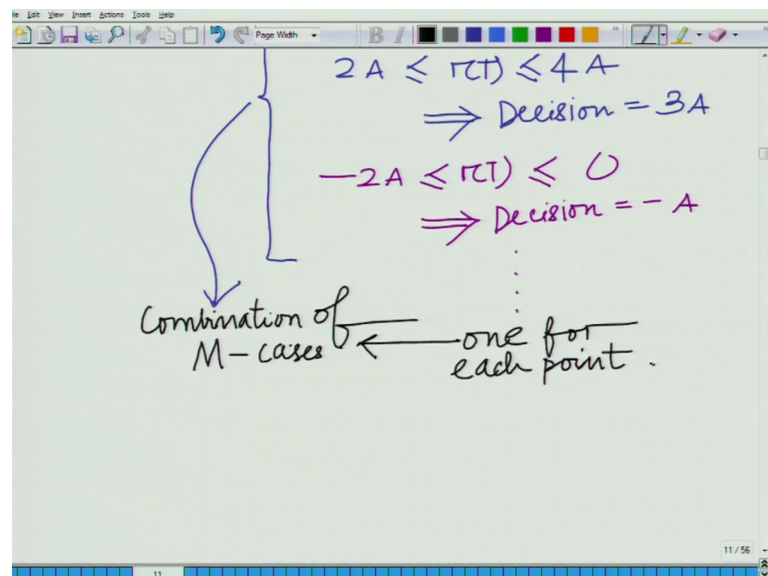 File Edit View Insert Actions Tools Help
Page Width
B I
2A ≤ r(T) ≤ 4A
⇒ Decision = 3A
-2A ≤ r(T) ≤ 0
⇒ Decision = - A
Combination of
M - cases ← one for
each point .
11 / 56
11